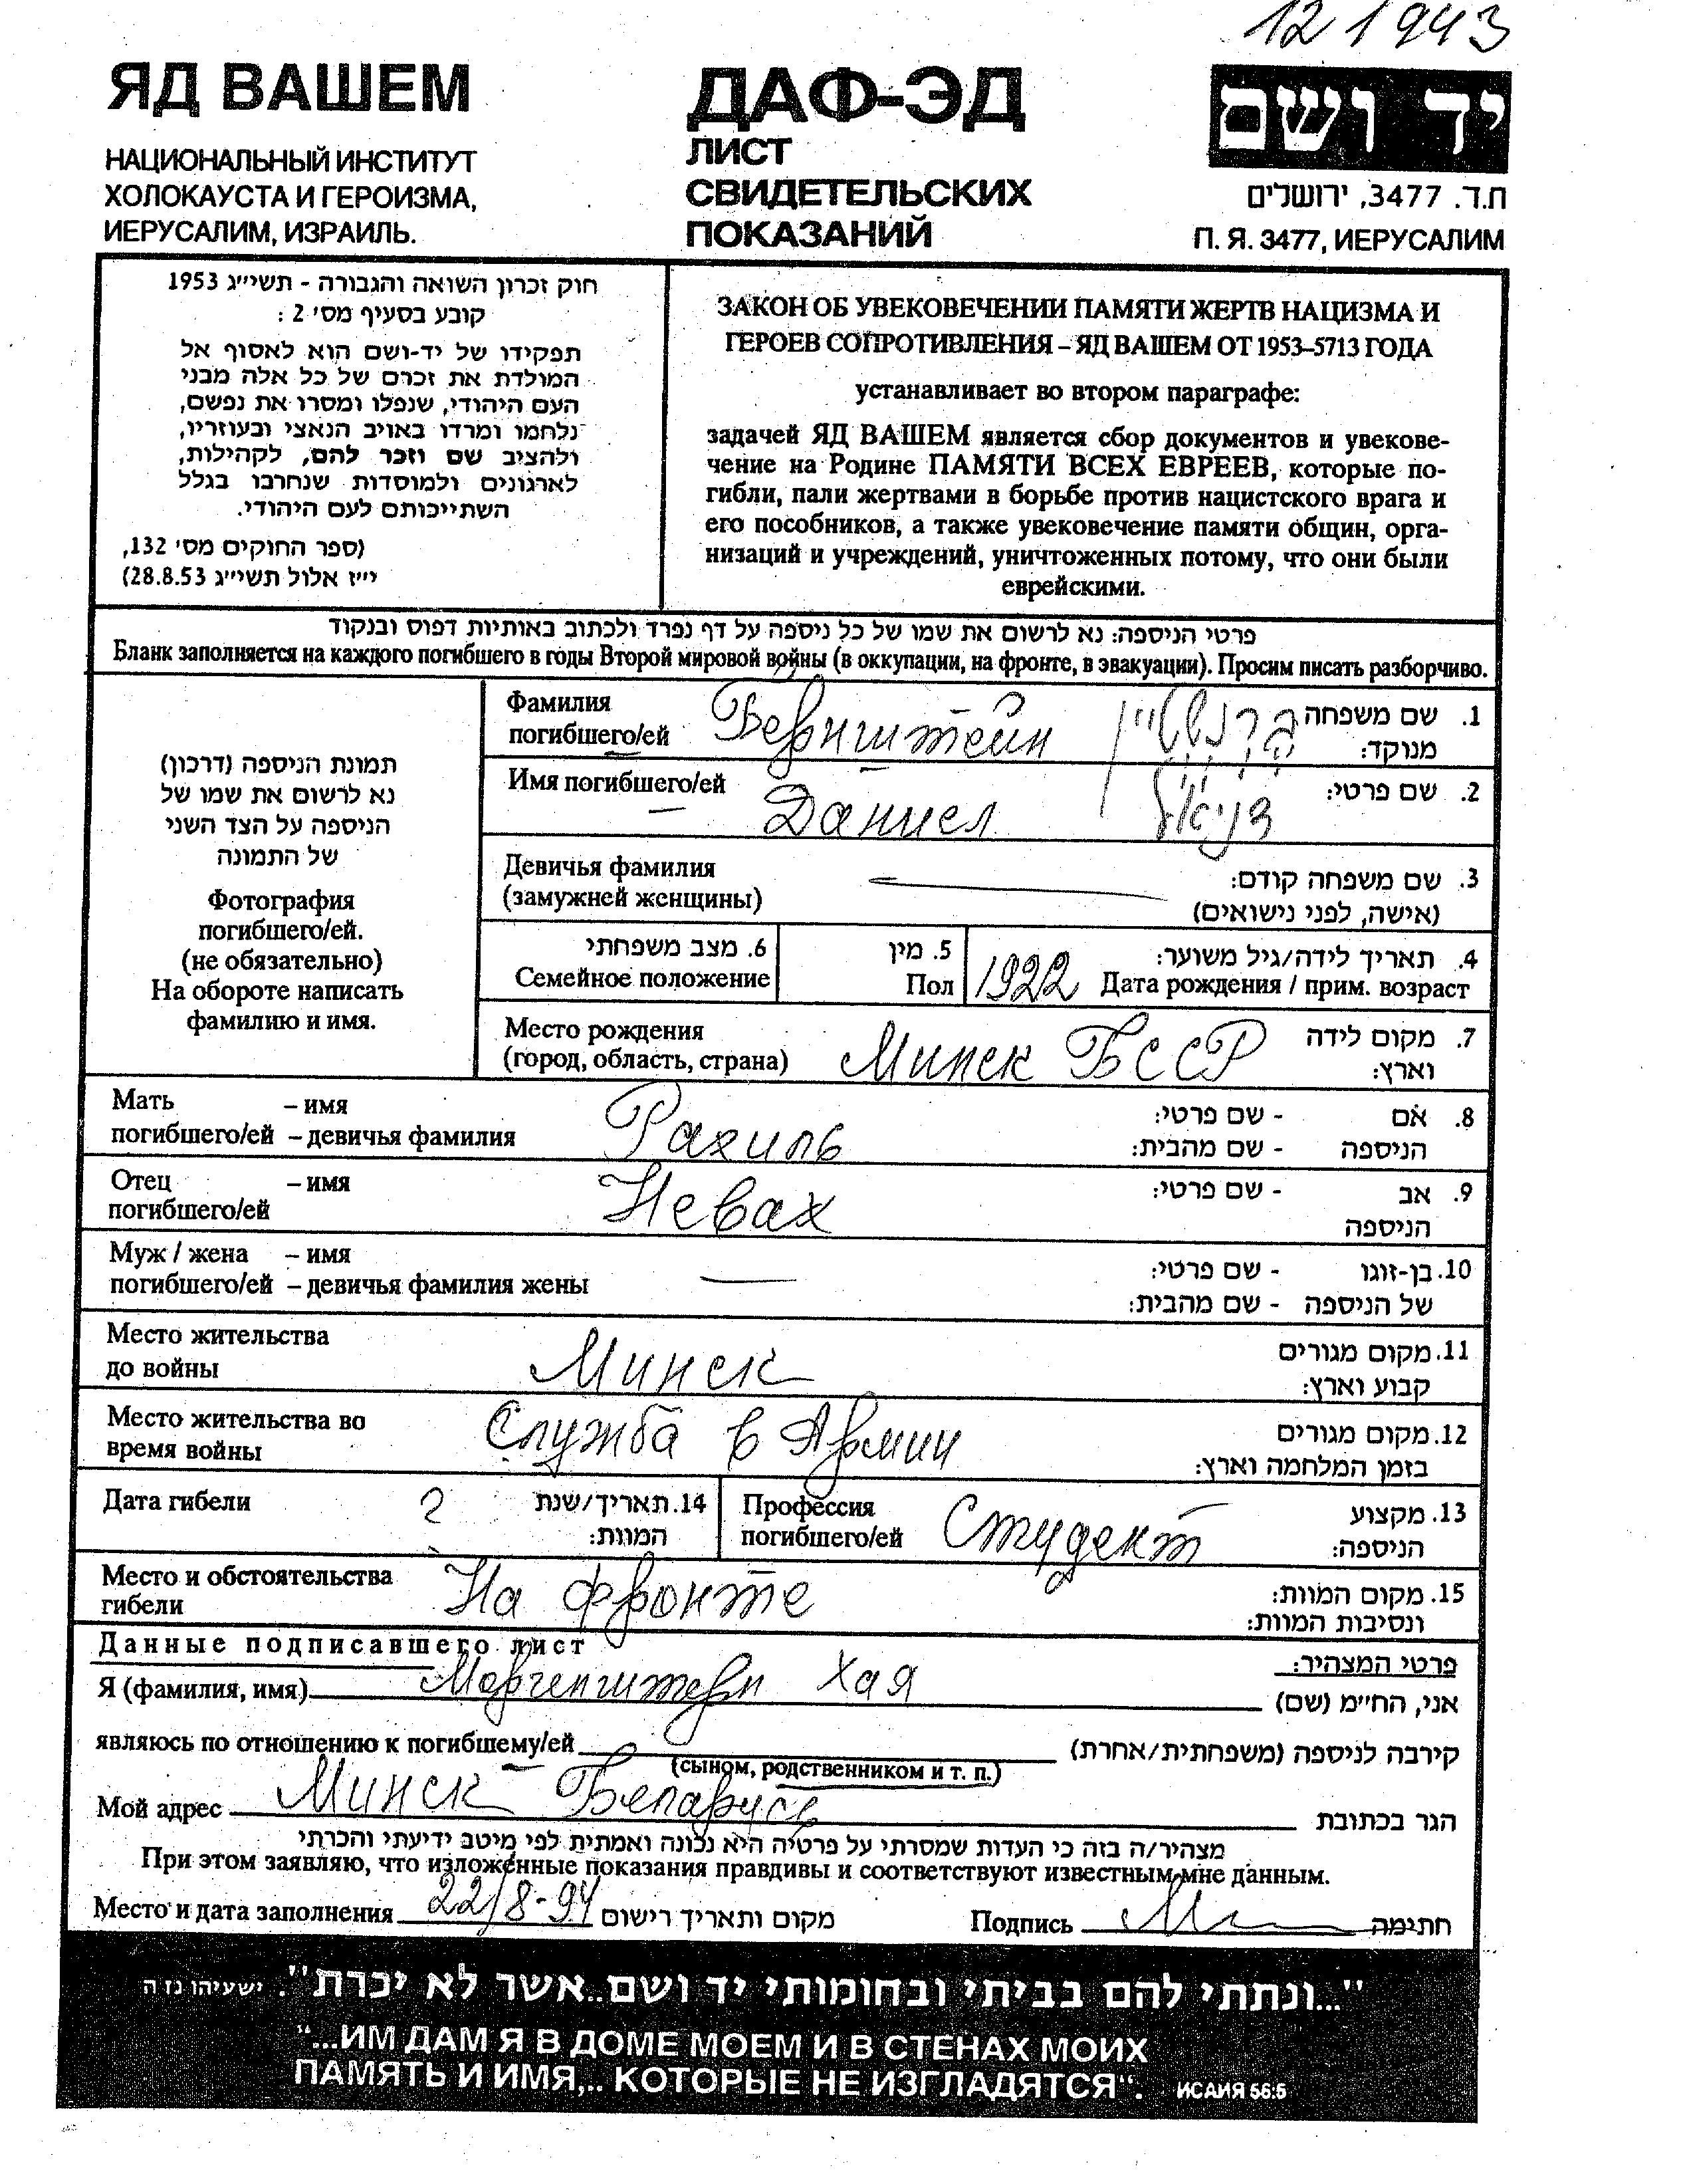 12 1943
ЯД ВАШЕМ
НАЦИОНАЛЬНЫЙ ИНСТИТУТ
ХОЛОКАУСТА И ГЕРОИЗМА,
ИЕРУСАЛИМ, ИЗРАИЛЬ.
ДАФ-ЭД
ЛИСТ
СВИДЕТЕЛЬСКИХ
ПОКАЗАНИЙ
יד ושם
ת.ד. 3477, ירושלים
П. Я. 3477, ИЕРУСАЛИМ
חוק זכרון השואה והגבורה - תשי״ג 1953
קובע בסעיף מס׳ 2 :
תפקידו של יד-ושם הוא לאסוף אל
המולדת את זכרם של כל אלה מבני
העם היהודי, שנפלו ומסרו את נפשם,
נלחמו ומרדו באויב הנאצי ובעוזריו,
ולהציב שם וזכר להם, לקהילות,
לארגונים ולמוסדות שנחרבו בגלל
השתייכותם לעם היהודי.
(ספר החוקים מס׳ 132,
י״ז אלול תשי״ג 28.8.53)
ЗАКОН ОБ УВЕКОВЕЧЕНИИ ПАМЯТИ ЖЕРТВ НАЦИЗМА И
ГЕРОЕВ СОПРОТИВЛЕНИЯ – ЯД ВАШЕМ ОТ 1953–5713 ГОДА
устанавливает во втором параграфе:
задачей ЯД ВАШЕМ является сбор документов и увекове-
чение на Родине ПАМЯТИ ВСЕХ ЕВРЕЕВ, которые по-
гибли, пали жертвами в борьбе против нацистского врага и
его пособников, а также увековечение памяти общин, орга-
низаций и учреждений, уничтоженных потому, что они были
еврейскими.
פרטי הניספה: נא לרשום את שמו של כל ניספה על דף נפרד ולכתוב באותיות דפוס ובנקוד
Бланк заполняется на каждого погибшего в годы Второй мировой войны (в оккупации, на фронте, в эвакуации). Просим писать разборчиво.
תמונת הניספה (דרכון)
נא לרשום את שמו של
הניספה על הצד השני
של התמונה
Фотография
погибшего/ей.
(не обязательно)
На обороте написать
фамилию и имя.
Фамилия
погибшего/ей Бернштейн ברנשטיין
1. שם משפחה
מנוקד:
Имя погибшего/ей Даниел דניאל 2. שם פרטי:
Девичья фамилия
(замужней женщины)
3. שם משפחה קודם:
(אישה, לפני נישואים)
6. מצב משפחתי
Семейное положение
5. מין
Пол
4. תאריך לידה/גיל משוער:
1922 Дата рождения / прим. возраст
Место рождения
(город, область, страна) Минск БССР
7. מקום לידה
וארץ:
Мать – имя
погибшего/ей – девичья фамилия Рахиль
8. אם - שם פרטי:
הניספה - שם מהבית:
Отец – имя
погибшего/ей Невах
9. אב - שם פרטי:
הניספה
Муж / жена – имя
погибшего/ей – девичья фамилия жены
10. בן-זוגו - שם פרטי:
של הניספה - שם מהבית:
Место жительства
до войны Минск
11. מקום מגורים
קבוע וארץ:
Место жительства во
время войны Служба в Армии
12. מקום מגורים
בזמן המלחמה וארץ:
Дата гибели ? 14. תאריך/שנת
המוות:
Профессия
погибшего/ей Студент
13. מקצוע
הניספה:
Место и обстоятельства
гибели На фронте
15. מקום המוות:
ונסיבות המוות:
Данные подписавшего лист
פרטי המצהיר:
Я (фамилия, имя) Моргенштерн Хая אני, הח״מ (שם)
являюсь по отношению к погибшему/ей קירבה לניספה (משפחתית/אחרת)
(сыном, родственником и т. п.)
Мой адрес Минск Беларусь הגר בכתובת
מצהיר/ה בזה כי העדות שמסרתי על פרטיה היא נכונה ואמתית לפי מיטב ידיעתי והכרתי
При этом заявляю, что изложенные показания правдивы и соответствуют известным мне данным.
Место и дата заполнения 22/8-94 מקום ותאריך רישום Подпись חתימה
"...ונתתי להם בביתי ובחומותי יד ושם..אשר לא יכרת". ישעיהו נז ה
“...ИМ ДАМ Я В ДОМЕ МОЕМ И В СТЕНАХ МОИХ
ПАМЯТЬ И ИМЯ,.. КОТОРЫЕ НЕ ИЗГЛАДЯТСЯ“. ИСАИЯ 56:5